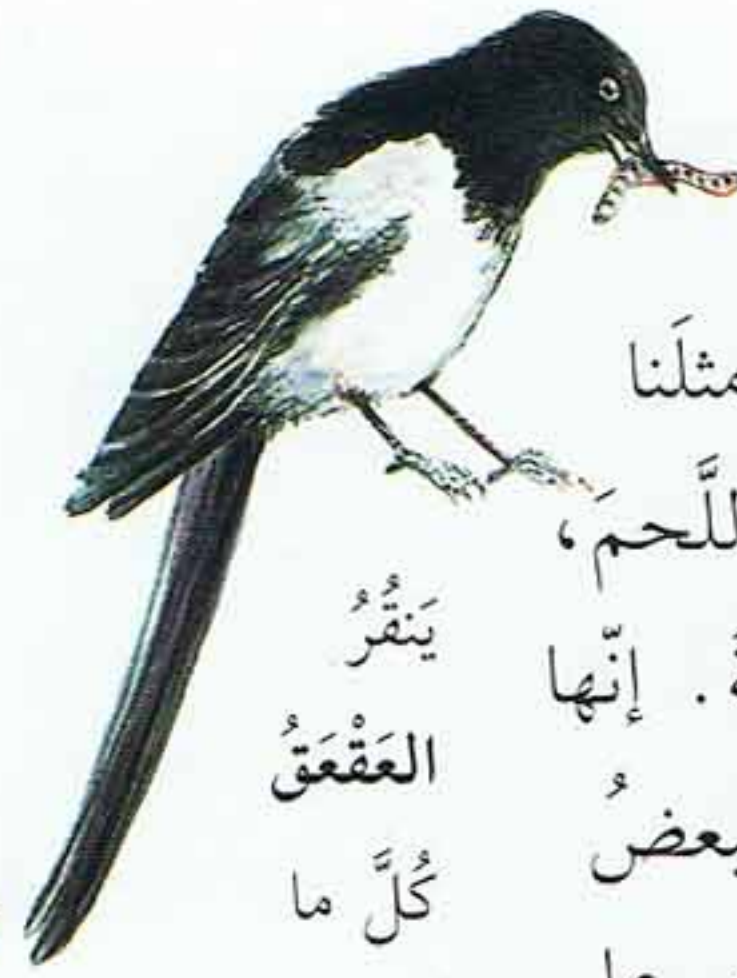 مثلَنا
اللَّحمَ،
. إنّها
بعضُ
يَنقُرُ
العَقْعَقُ
كُلَّ ما